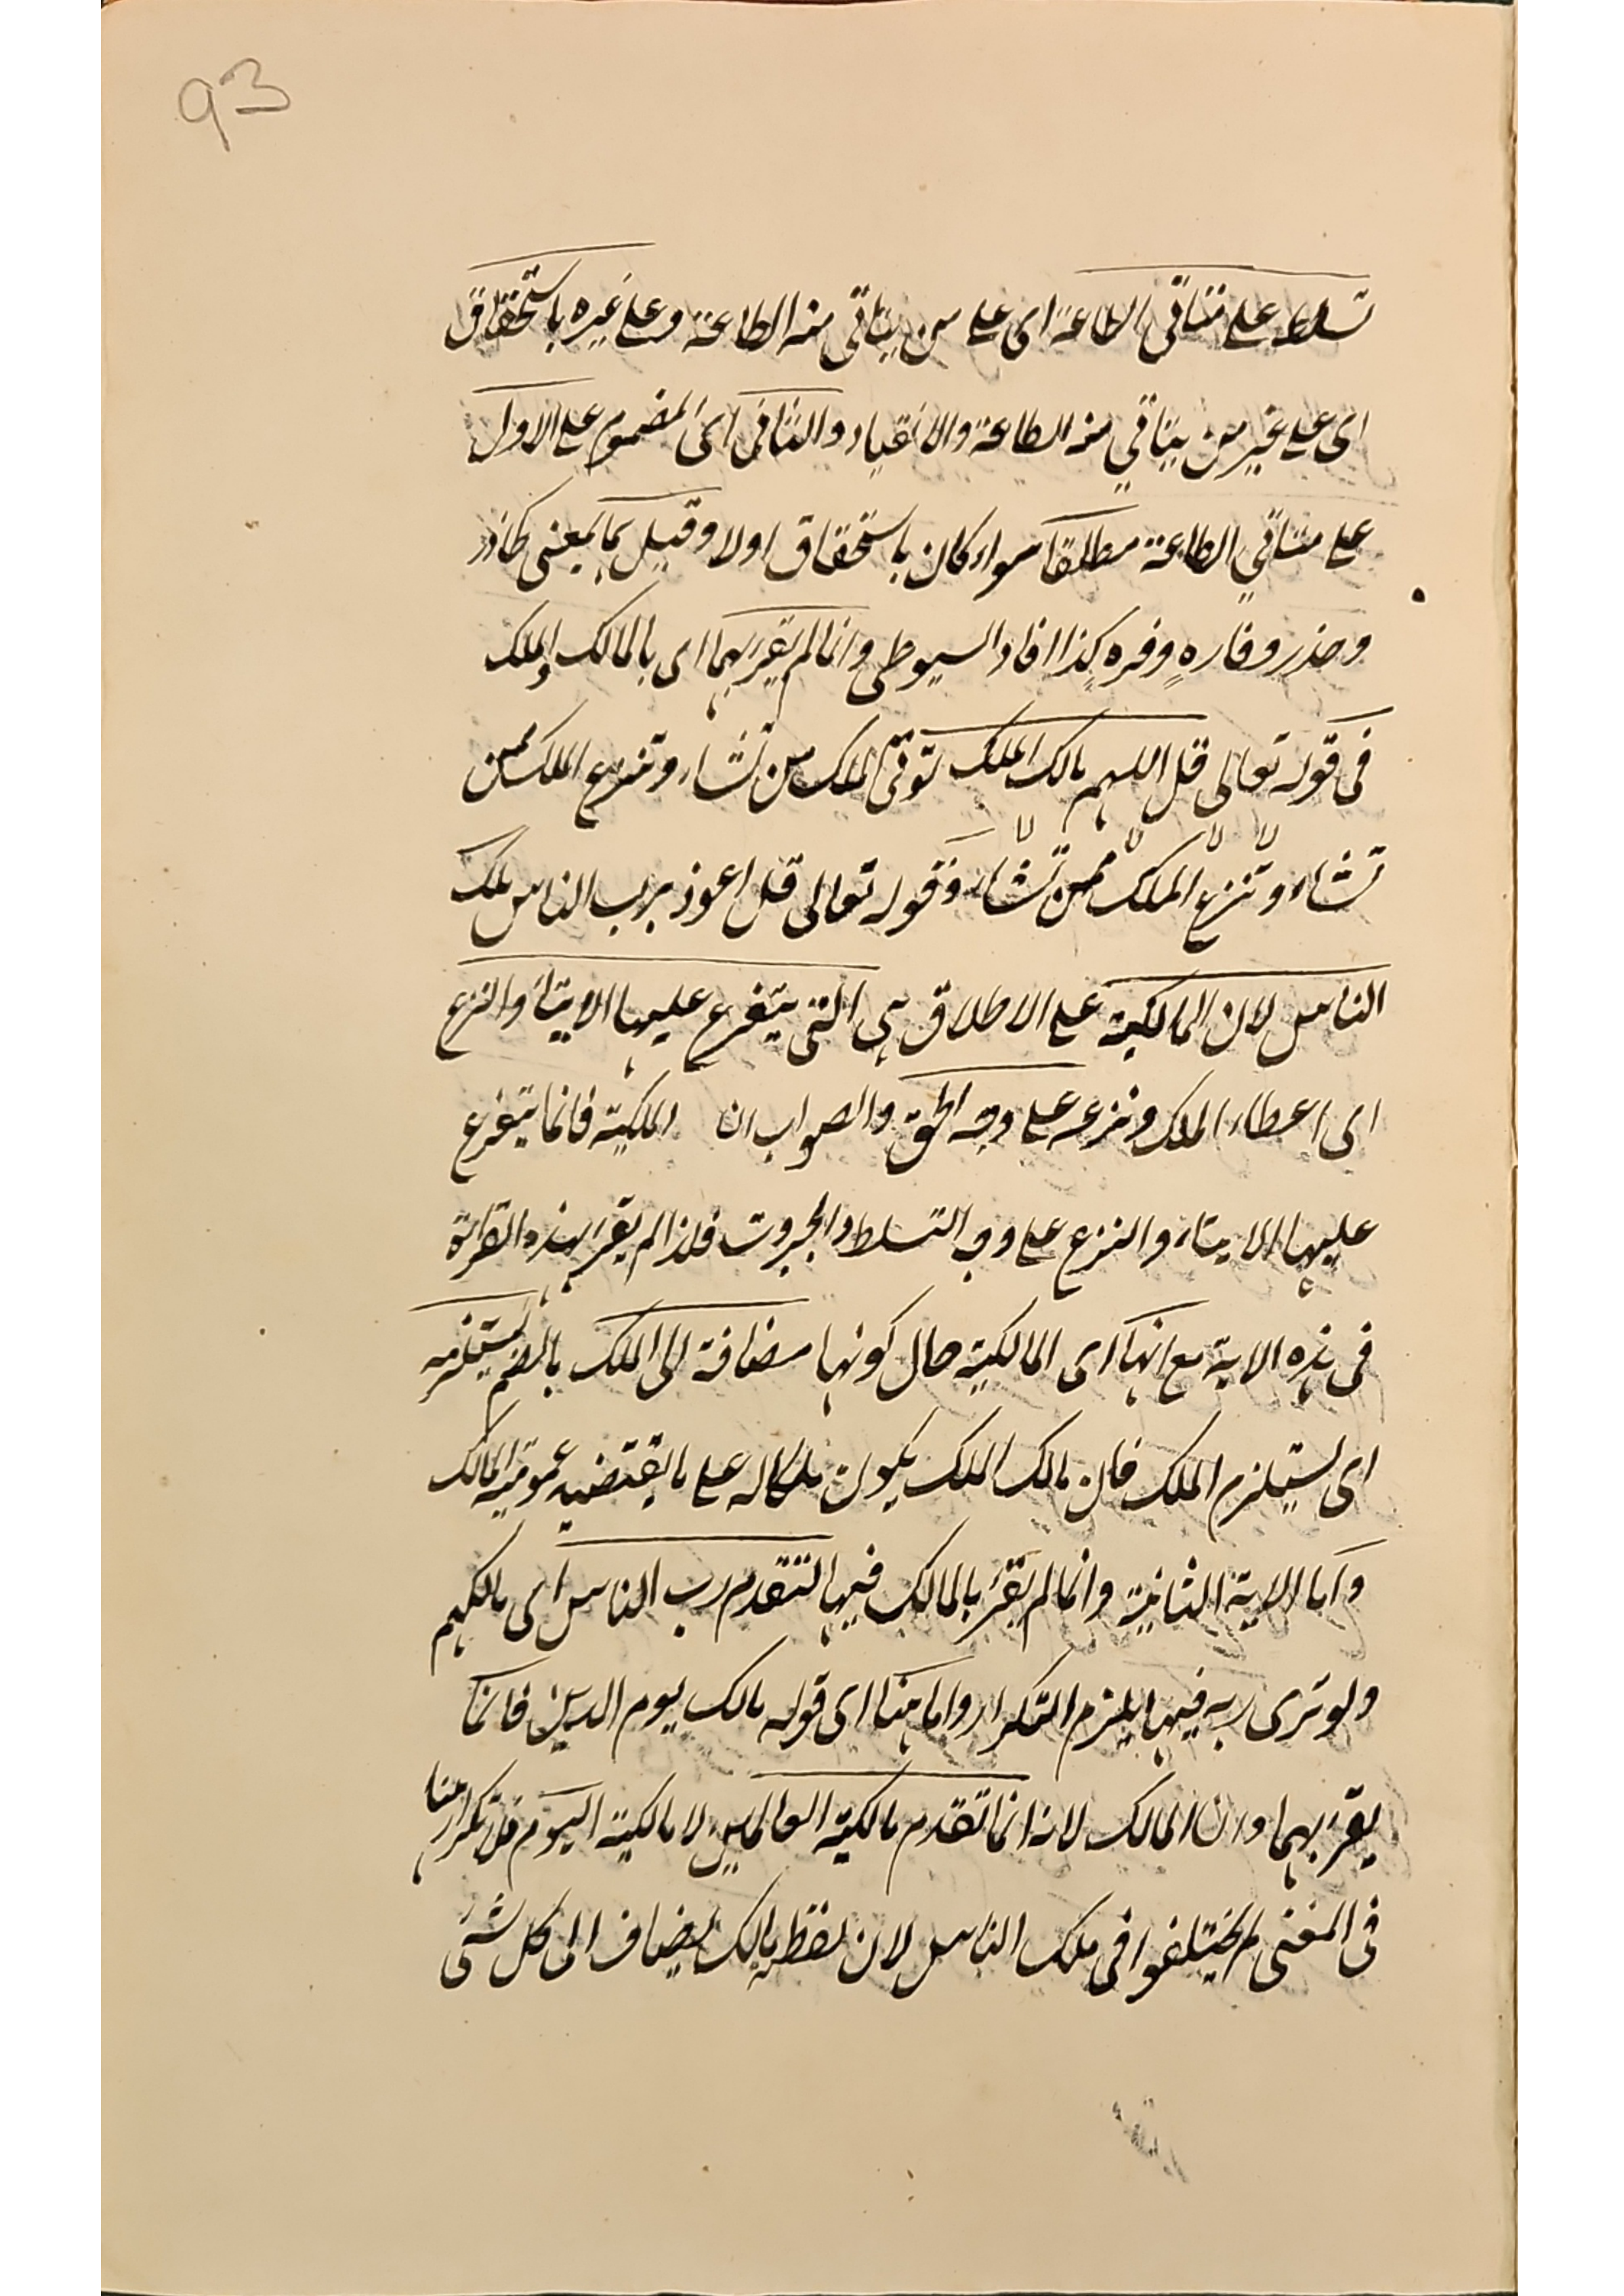 93
تسلط على متأتي الطاعة اى على من يتأتى منه الطاعة وعلى غيره باستحقاق
اى على غير من يتأتي منه الطاعة والانقياد والثانى اى المضموم على الاول
على متأتي الطاعة مطلقا سواء كان باستحقاق اولا وقيل بمعنى كحاذر
وحذر وفاره وفره كذا افاد السيوطى وانما لم يقرء بهما اى بالمالك والملك
فى قوله تعالى قل اللهم مالك الملك توتى الملك من تشاء وتنزع الملك ممن
تشاء وتنزع الملك ممن تشاء وقوله تعالى قل اعوذ برب الناس ملك
الناس لان المالكية على الاطلاق هى التى يتفرع عليها الايتاء والنزع
اى اعطاء الملك ونزعه على وجه الحق والصواب ان الملكية فانما يتفرع
عليها الايتاء والنزع على وجه التسلط والجبروت فلذا لم يقرء بهذه القراءة
فى هذه الاية مع انها اى المالكية حال كونها مضافة الى الملك بالضم يستلزمه
اى يستلزم الملك فان مالك الملك يكون ملكا له على ما يقتضيه عمومية المالك
واما الاية الثانية وانما لم يقرء بالمالك فيها لتقدم رب الناس اى مالكهم
ولو ترى به فيها يلزم التكرار واما هنا اى قوله مالك يوم الدين فانما
يقرء بهما وان المالك لانه انما تقدم مالكية العالمين لا مالكية اليوم فلا تكرار هنا
فى المغنى لم يختلفوا فى ملك الناس لان لفظ مالك يضاف الى كل شئ